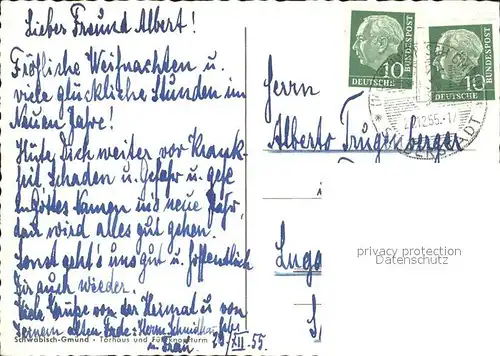 Lieber Freund Albert!
Fröhliche Weihnachten u.
viele glückliche Stunden im
Neuen Jahre!
Hüte Dich weiter vor Krank-
heit, Schaden u. Gefahr u. geh
in Gottes Namen ins neue Jahr,
dann wird alles gut gehen.
Sonst geht's uns gut u. hoffentlich
Dir auch wieder.
Viele Grüße von der Heimat u. von
Deinem alten
u. Frau. 20/XII. 55.
Schwäbisch-Gmünd · Torhaus und Fünfknopfturm
10 DEUTSCHE BUNDESPOST
10 DEUTSCHE BUNDESPOST
12.55.-17
Herrn
Alberto
Lugo
privacy protection
Datenschutz